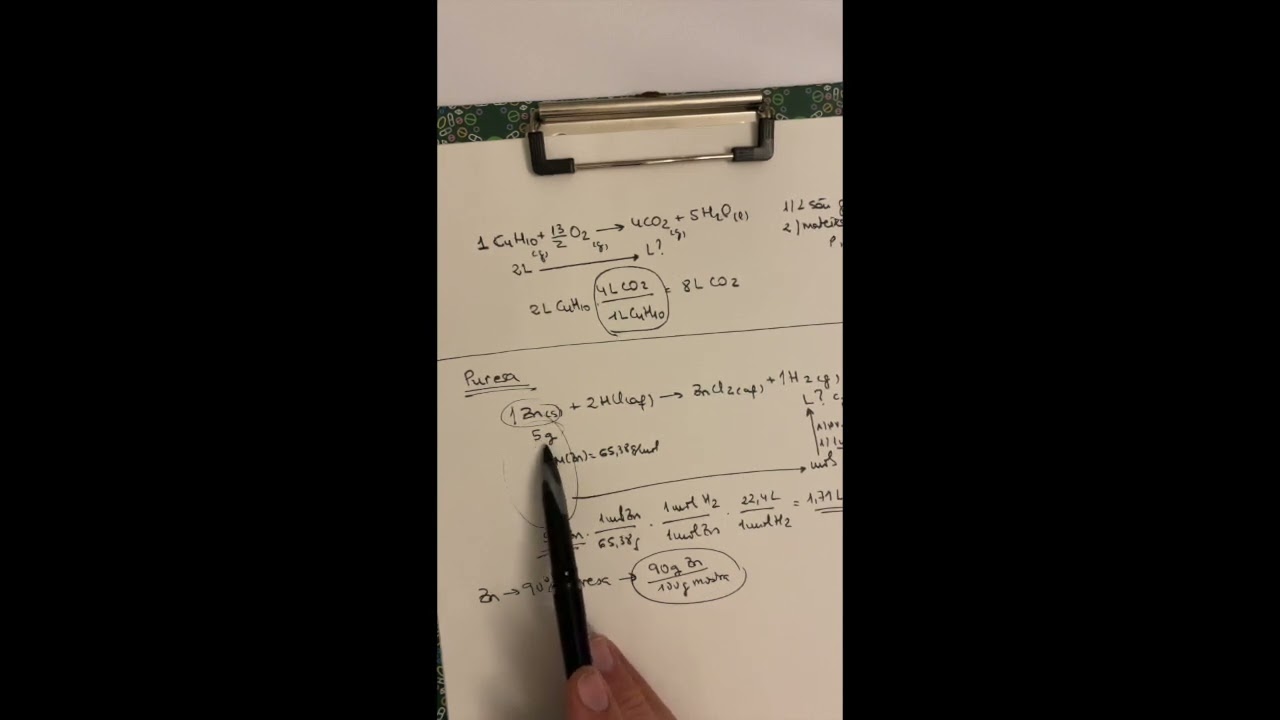 1 C4H10(g) + 13/2 O2(g) → 4CO2(g) + 5H2O(l)
2L → L?
2L C4H10 · 4L CO2 / 1L C4H10 = 8L CO2
1) 2 són g
2)
Puresa
1 Zn(s) + 2HCl(aq) → ZnCl2(aq) + 1H2(g)
5g L?
M(Zn) = 65,38g/mol
mols
1mol Zn / 65,38g · 1mol H2 / 1mol Zn · 22,4L / 1mol H2 = 1,71L
Zn → 90% puresa → 90g Zn / 100g mostra